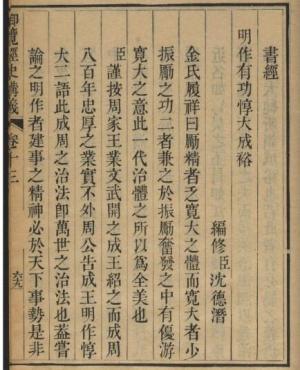 書經
明作有功惇大成裕
編修臣沈德潛
金氏履祥曰勵精者乏寬大之體而寬大者少
振勵之功二者兼之於振勵奮發之中有優游
寬大之意此一代治體之所以為全美也
臣謹按周家王業文武開之成王紹之而成周
八百年忠厚之業實不外周公告成王明作惇
大二語此成周之治法即萬世之治法也蓋嘗
論之明作者建事之精神必於天下事勢是非
御覽經史講義 卷十三